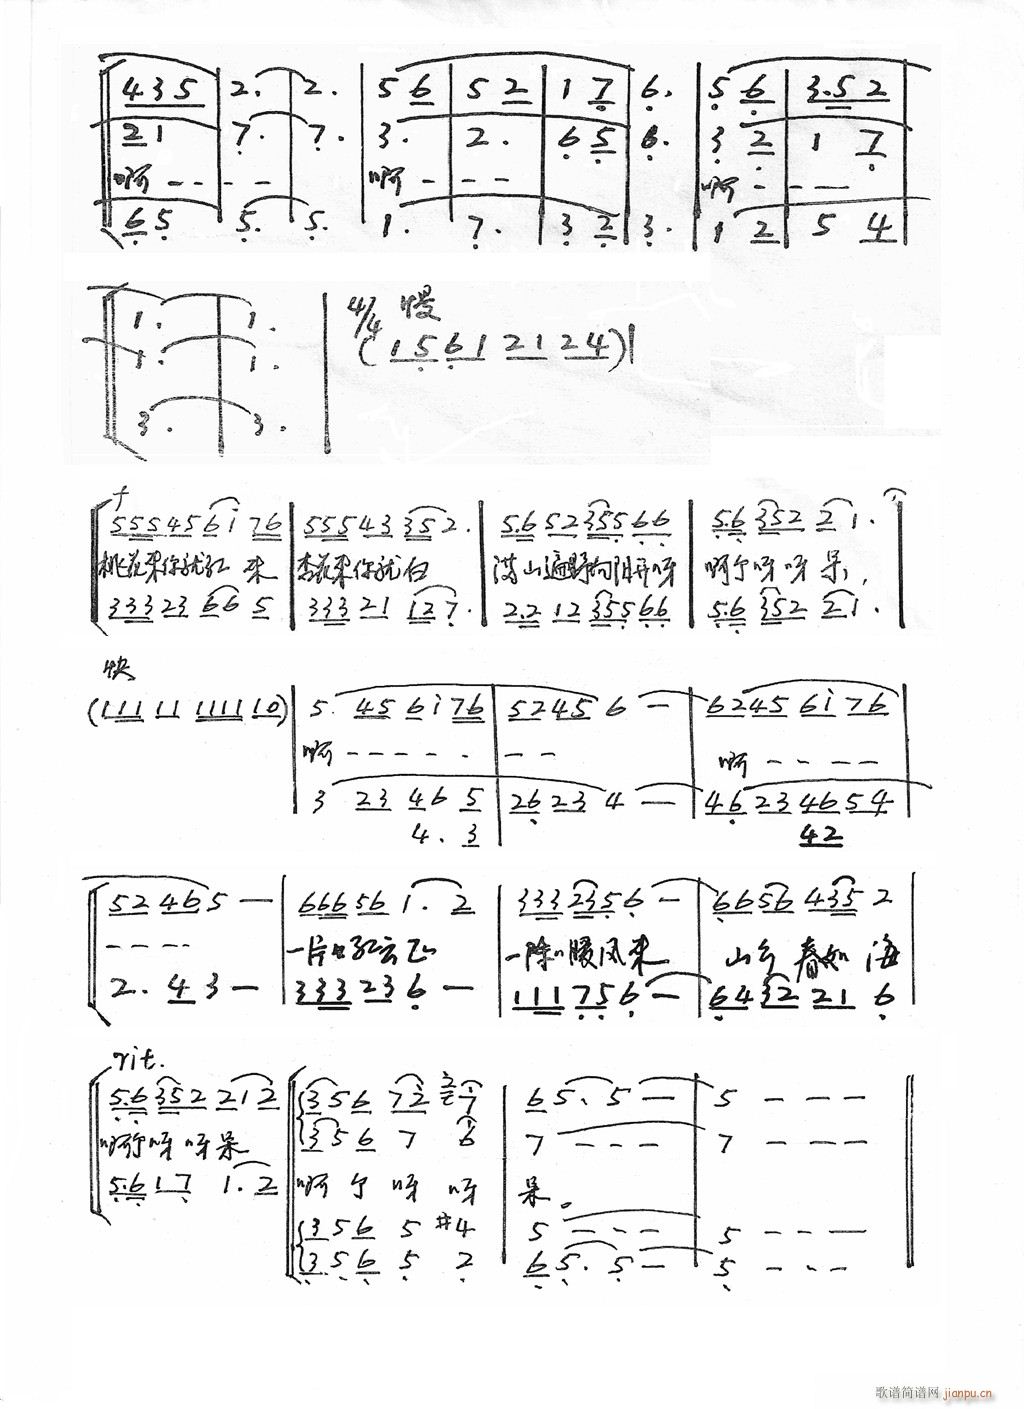 4 3 5 2. 2. 5 6 5 2 1 7 6. 5 6 3.5 2
2 1 7. 7. 3. 2. 6 5 6. 3 2 1 7
啊 - - - - 啊 - - - 啊 - - -
6 5 5. 5. 1. 7. 3 2 3. 1 2 5 4
1. 1. 4/4 慢
(1 5 6 1 2 1 2 4)
1. 1.
3. 3.
f
5 5 5 4 5 6 i 7 6 5 5 5 4 3 3 5 2. 5.6 5 2 3 5 5 6 6 5.6 3 5 2 2 1.
桃花来你就红 来 杏花来你就白 满山遍野向阳开呀 啊个呀呀呆,
3 3 3 2 3 6 6 5 3 3 3 2 1 1 2 7. 2.2 1 2 3 5 5 6 6 5.6 3 5 2 2 1.
快
(1 1 1 1 1 1 1 1 1 1 0) 5. 4 5 6 i 7 6 5 2 4 5 6 — 6 2 4 5 6 i 7 6
啊 - - - - - - - 啊 - - - -
3 2 3 4 6 5 2 6 2 3 4 — 4 6 2 3 4 6 5 4
4. 3 4 2
5 2 4 6 5 — 6 6 6 5 6 1. 2 3 3 3 2 3 5 6 — 6 6 5 6 4 3 5 2
- - - - 一片 红云 一 暖风来 山乡 春如 海
2. 4 3 — 3 3 3 2 3 6 — 1 1 1 7 5 6 — 6 4 3 2 2 1 6
rit.
5.6 3 5 2 2 1 2 3 5 6 7 2 7 6 5. 5 — 5 — — —
3 5 6 7 6 7 - - - 7 — — —
啊个呀 呀呆 啊 个 呀 呀 呆。
5.6 1 7 1. 2
3 5 6 5 #4 5 - - - 5 - - —
3 5 6 5 2 6 5. 5 — 5 - - -
歌谱简谱网 jianpu.cn